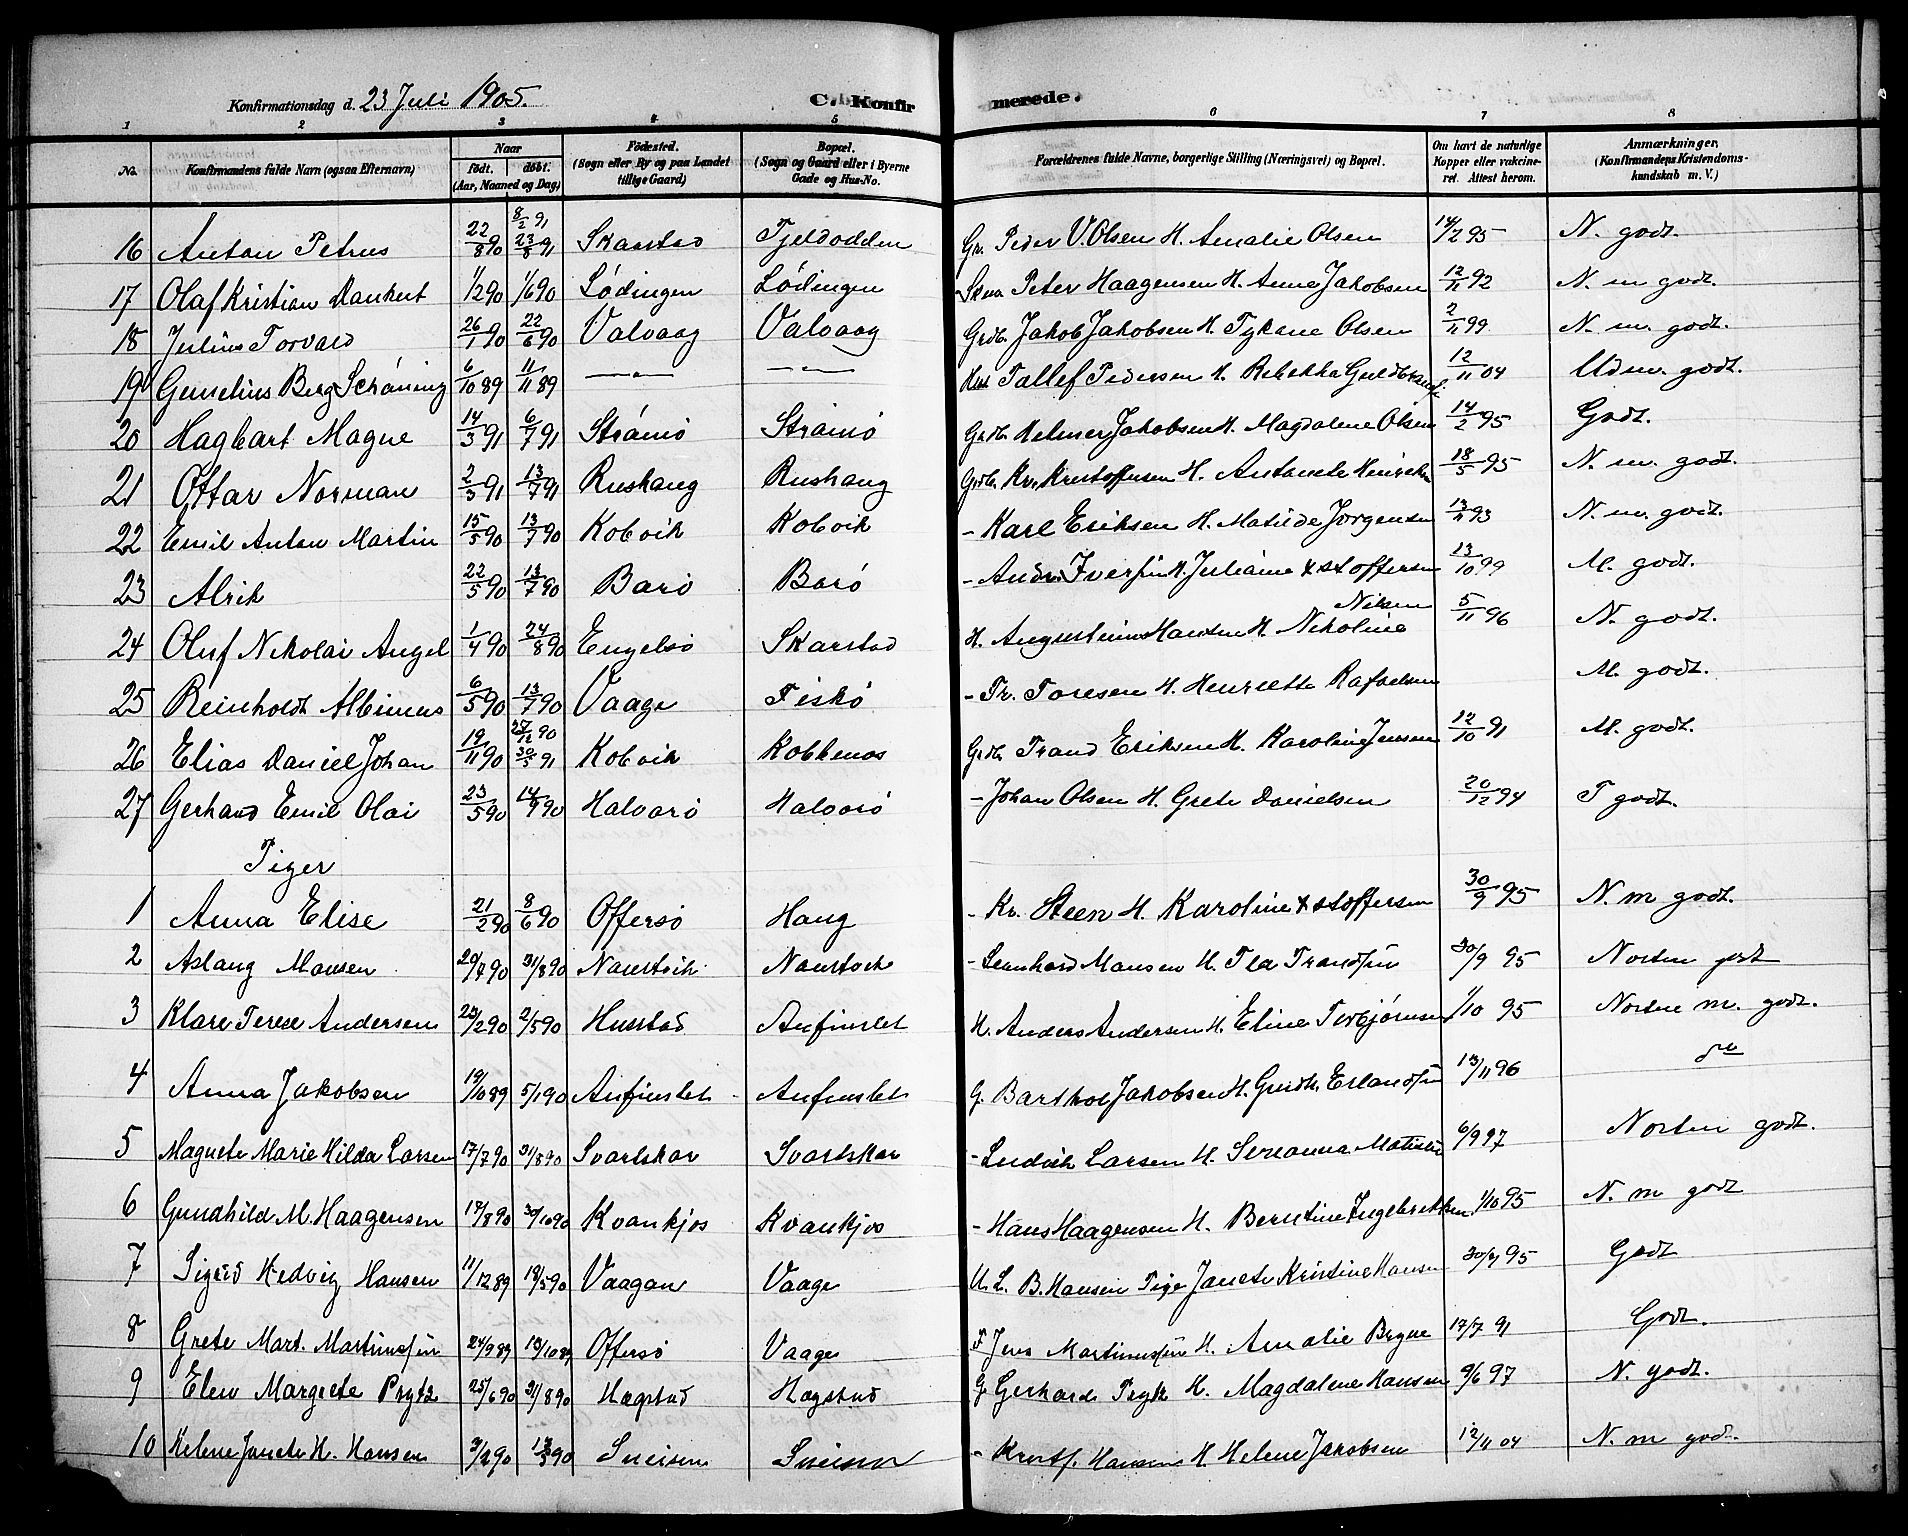 Konfirmationsdag d. 23 Juli 1905.
C. Konfirmerede.
1 2 3 4 5 6 7 8
No. Konfirmandens fulde Navn (ogsaa Efternavn) Naar født. døbt. (Aar, Maaned og Dag) Fødested. (Sogn efter By og paa Landet tillige Gaard) Bopæl. (Sogn og Gaard eller i Byerne Gade og Hus-No. Forældrenes fulde Navne, borgerlige Stilling (Næringsvei) og Bopæl. Om havt de naturlige Kopper eller vakcineret. Attest herom. Anmærkninger, (Konfirmandens Kristendomskundskab m. V.)
16 Anton Petrus 22/8 90 8/2 91 23/8 91 Skarstad Tjeldodden Gr. Peder V. Olsen H. Amalie Olsen 14/2 95 N. godt.
17 Olaf Kristian Dankert 1/2 90 1/6 90 Lødingen Lødingen Peter Haagensen H. Anna Jakobsen 12/11 92 N. m godt.
18 Julius Torvald 26/1 90 22/6 90 Valvaag Valvaag Grdb. Jakob Jakobsen H. Olsen 2/11 99 N. m. godt.
19 Berg Schøning 6/10 89 11/11 89 —"— —"— Tallef Pedersen H. Rebekka 12/11 04 Udm. godt.
20 Hagbart Magne 14/3 91 6/7 91 Strømø Strømø Grdb. Helmer Jakobsen H. Magdalene Olsen 14/2 95 Godt.
21 Ottar Norman 2/3 91 13/7 91 Rushaug Rushaug Grdb. Kr. Kristoffersen H. Antonete 18/5 95 N. m. godt.
22 Emil Anton Martin 15/5 90 13/7 90 Kobvik Kobvik - Karl Eriksen H. Matilde Jørgensen 13/11 93 N. m. godt.
23 Alrik 22/5 90 13/7 90 Barø Barø - Andr. Iversen H. Juliane Xstoffersen 13/10 99 M. godt.
24 Oluf Nikolai Angel 1/4 90 24/8 90 Engelsø Skarstad H. Hansen H. Nikoline Nilsen 5/11 96 N. godt.
25 Reinholdt Albinus 6/5 90 13/7 90 Vaage Fiskø - Tr. Toresen H. Henriette Rafaelsen M. godt.
26 Elias Daniel Johan 19/11 90 27/12 90 30/5 91 Kobvik Kobbenes Grdb. Trand Eriksen H. Karoline Jenssen 12/10 91 M. godt.
27 Gerhard Emil Olai 23/5 90 14/9 90 Halvarø Halvarø - Johan Olsen H. Grete Danielsen 20/12 94 T godt.
Piger
1 Anna Elise 21/2 90 8/6 90 Offersø Haug - Kr. Steen H. Karoline Xstoffersen 30/9 95 N. m godt.
2 Aslaug Hansen 29/7 90 31/8 90 Naustvik Naustvik - Leonhard Hansen H. 30/9 95 Noksen godt
3 Klara Terese Andersen 23/2 90 2/5 90 Husstad Anfinslet H. Anders Andersen H. Eline Torbjørnsen 1/10 95 m. godt.
4 Anna Jakobsen 19/10 89 5/1 90 Anfinslet Anfinslet G. Barthol Jakobsen H. Gurdh. Erlandsen 13/11 96 do
5 Magnete Marie Hilda Larsen 17/7 90 31/8 90 Svartskar Svartskar - Ludvik Larsen H. Serianna 6/9 97 godt.
6 Gundhild M. Haagensen 17/8 90 30/10 90 Kvankjos Kvankjos - Hans Haagensen H. Berntine Ingebrektsen 1/10 95 N. m godt
7 Sigrid Hedvig Hansen 11/12 89 18/5 90 Vaagan Vaage U. L. B. Hansen Pige Janete Kristine Hansen 30/9 95 Godt
8 Grete Mart. Martinussen 24/9 89 19/10 89 Offersø Vaage F. Jens Martinussen H. Amalie Bryne 17/7 91 Godt.
9 Elen Margrete Prytz 25/6 90 31/8 90 Hægstad Hægstad G. Gerhard H. Magdalene Hansen 9/6 97 N. godt.
10 Helene Janete H. Hansen 3/2 90 13/3 90 Sneisen Sneisen - Kristf. Hansen H. Helene Jakobsen 12/11 04 N. m godt.